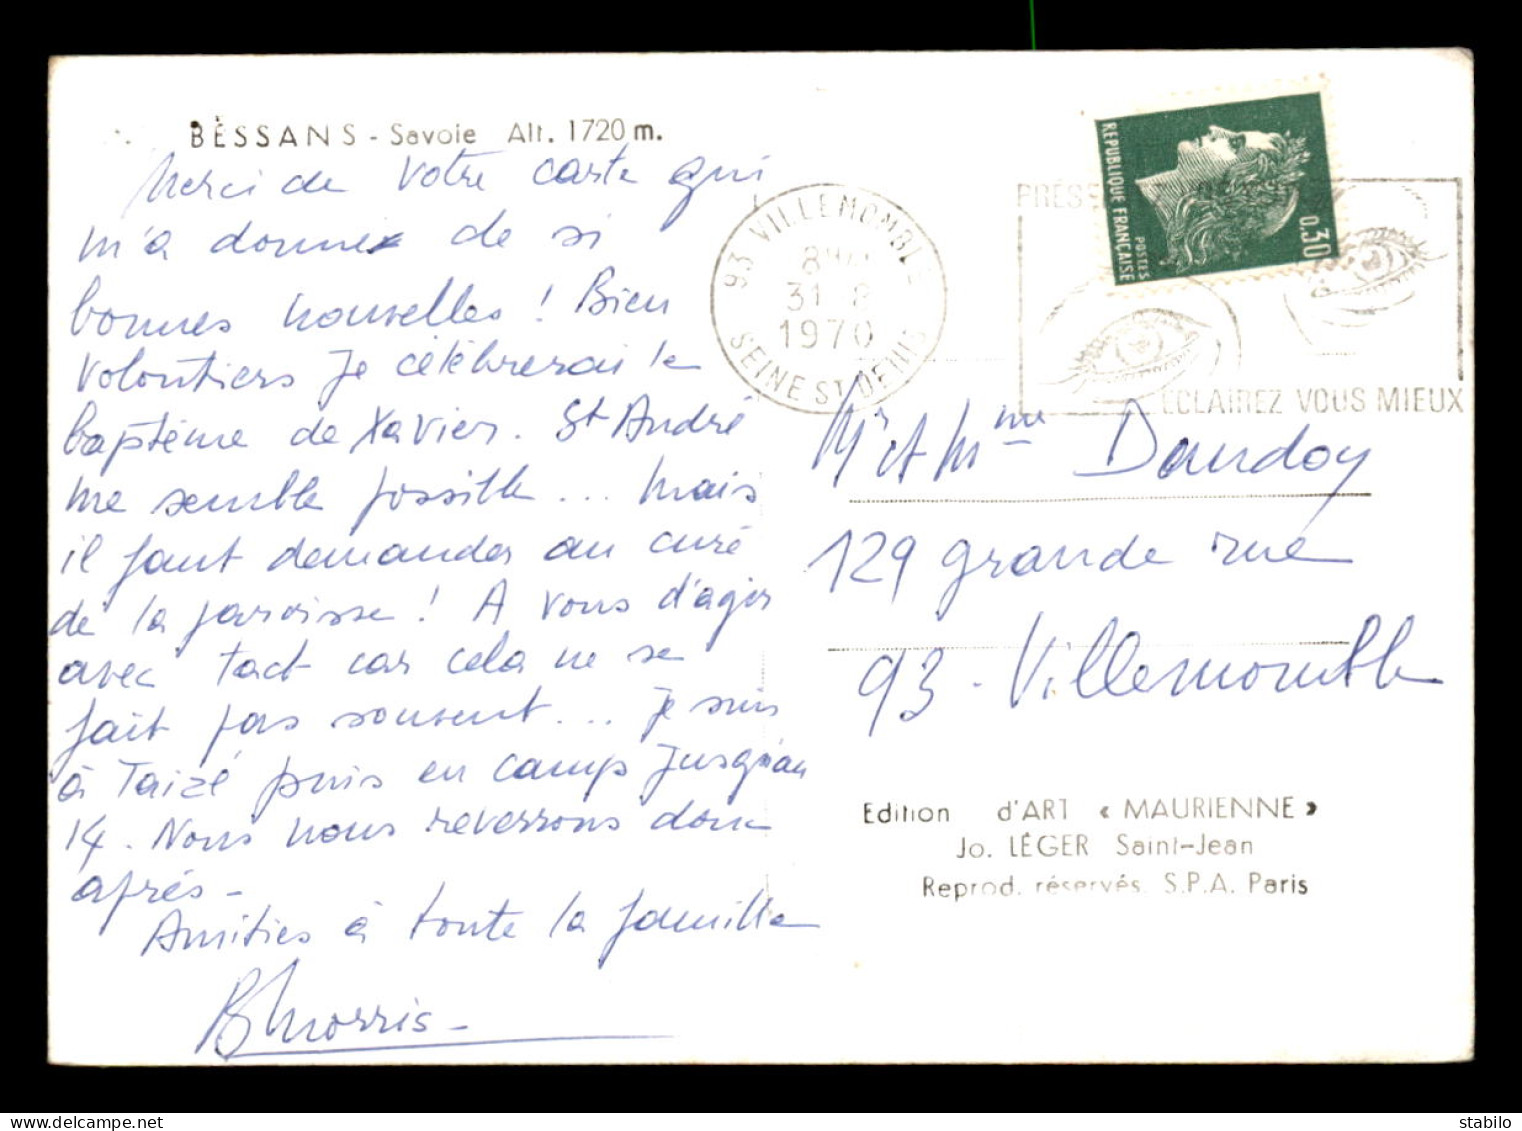 BESSANS - Savoie Alt. 1720 m.
Merci de votre carte qui
m'a donné de si
bonnes nouvelles ! Bien
volontiers je célébrerai le
baptême de Xavier. St André
me semble possible... mais
il faut demander au curé
de la paroisse ! A vous d'agir
avec tact car cela ne se
fait pas souvent... je suis
à Taizé puis en camp jusqu'au
14. Nous nous reverrons donc
après -
Amitiés à toute la famille
93 VILLEMOMBLE
31 8
1970
SEINE ST DENIS
REPUBLIQUE FRANÇAISE
POSTES
0,30
ECLAIREZ VOUS MIEUX
Mr et Mme Dandoy
129 grande rue
93 - Villemomble
Edition d'ART « MAURIENNE »
Jo. LÉGER Saint-Jean
Reprod. réservés S.P.A. Paris
stamp-us.delcampe.net